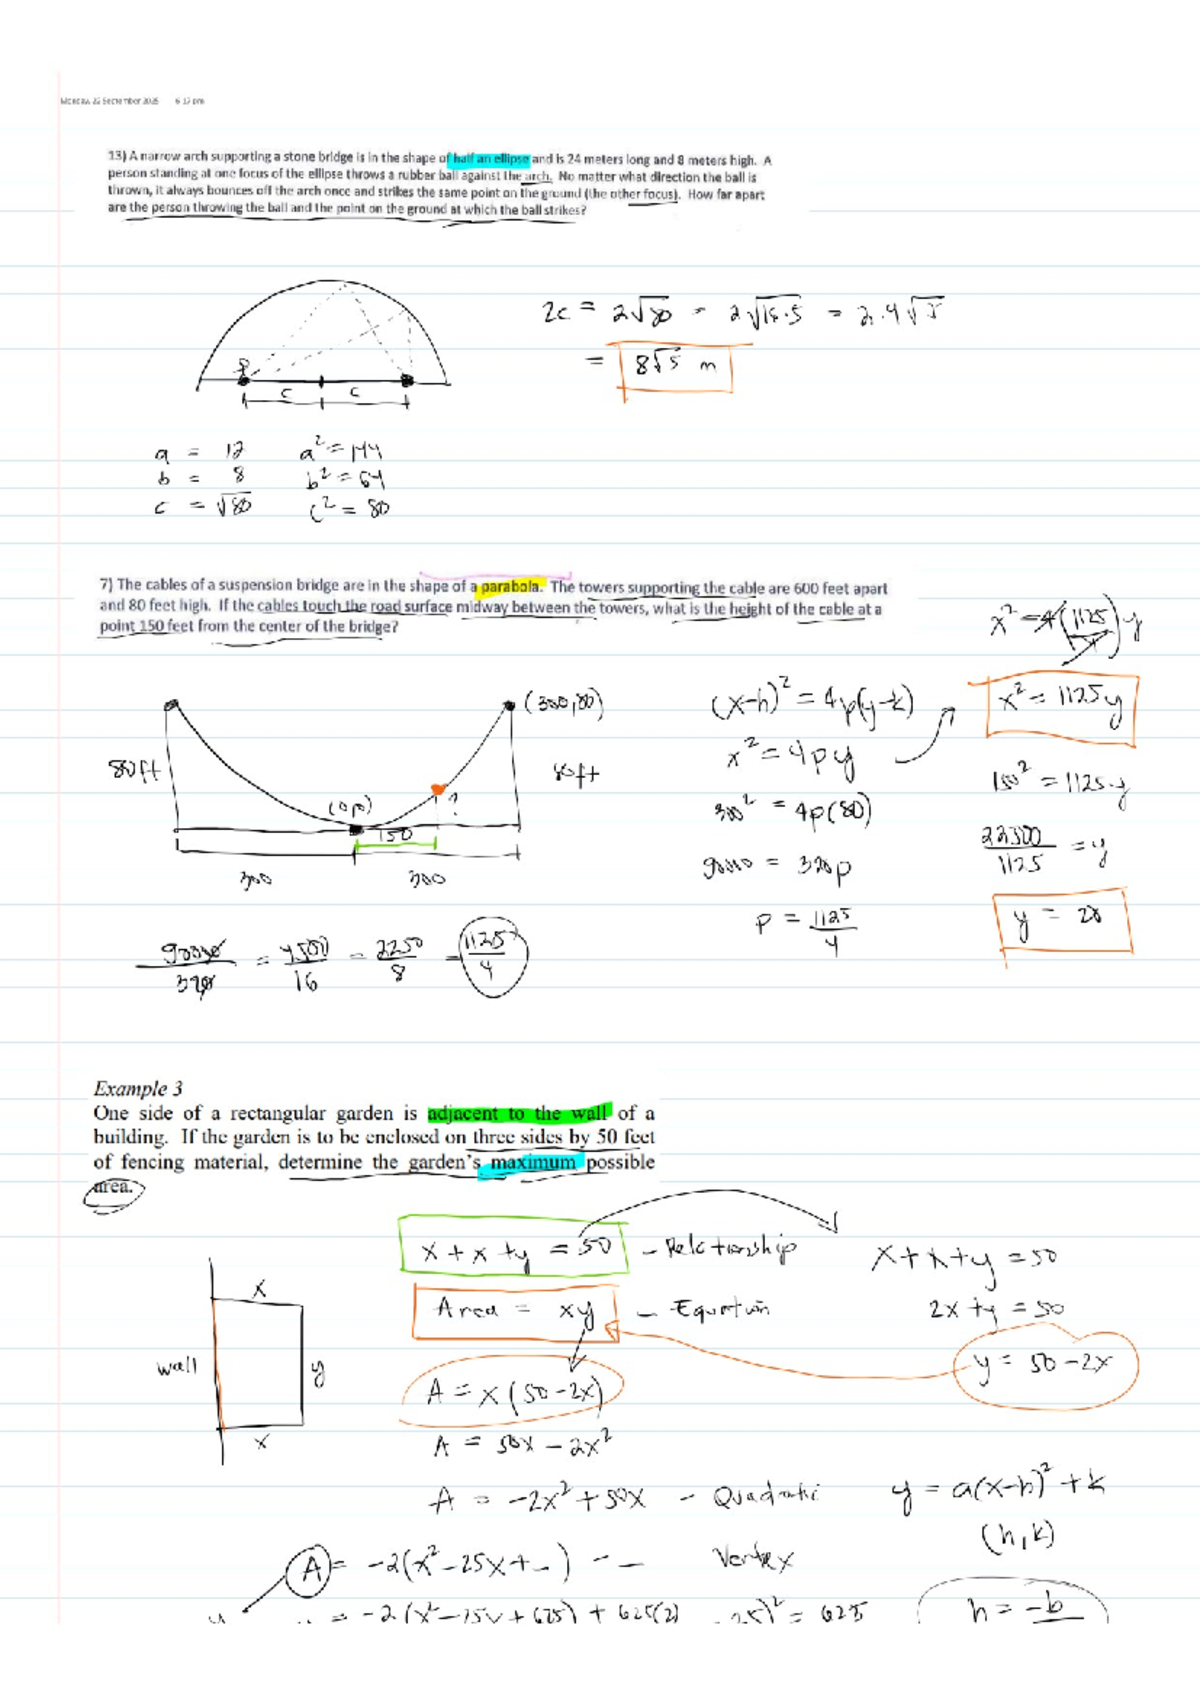 Monday, 22 September 2025 6:17 pm
13) A narrow arch supporting a stone bridge is in the shape of half an ellipse and is 24 meters long and 8 meters high. A
person standing at one focus of the ellipse throws a rubber ball against the arch. No matter what direction the ball is
thrown, it always bounces off the arch once and strikes the same point on the ground (the other focus). How far apart
are the person throwing the ball and the point on the ground at which the ball strikes?
2c = 2√80 = 2√16·5 = 2·4√5
= 8√5 m
c c
a = 12 a² = 144
b = 8 b² = 64
c = √80 c² = 80
7) The cables of a suspension bridge are in the shape of a parabola. The towers supporting the cable are 600 feet apart
and 80 feet high. If the cables touch the road surface midway between the towers, what is the height of the cable at a
point 150 feet from the center of the bridge?
x² = 4(1125/4)y
(x-h)² = 4p(y-k)
x² = 1125y
(300,80)
x² = 4py
80ft
80ft
150² = 1125·y
(0,0)
?
150
300² = 4p(80)
22500/1125 = y
300 300
90000 = 320p
p = 1125/4
y = 20
90000/320 = 4500/16 = 2250/8 = 1125/4
Example 3
One side of a rectangular garden is adjacent to the wall of a
building. If the garden is to be enclosed on three sides by 50 feet
of fencing material, determine the garden's maximum possible
area.
x + x + y = 50 - Relationship
x + x + y = 50
x
Area = xy - Equation
2x + y = 50
wall
y
y = 50 - 2x
A = x(50 - 2x)
x
A = 50x - 2x²
A = -2x² + 50x - Quadratic
y = a(x-h)² + k
(h,k)
A = -2(x² - 25x + _) - - Vertex
= -2(x² - 25x + 625) + 625(2)
25)² = 625
h = -b